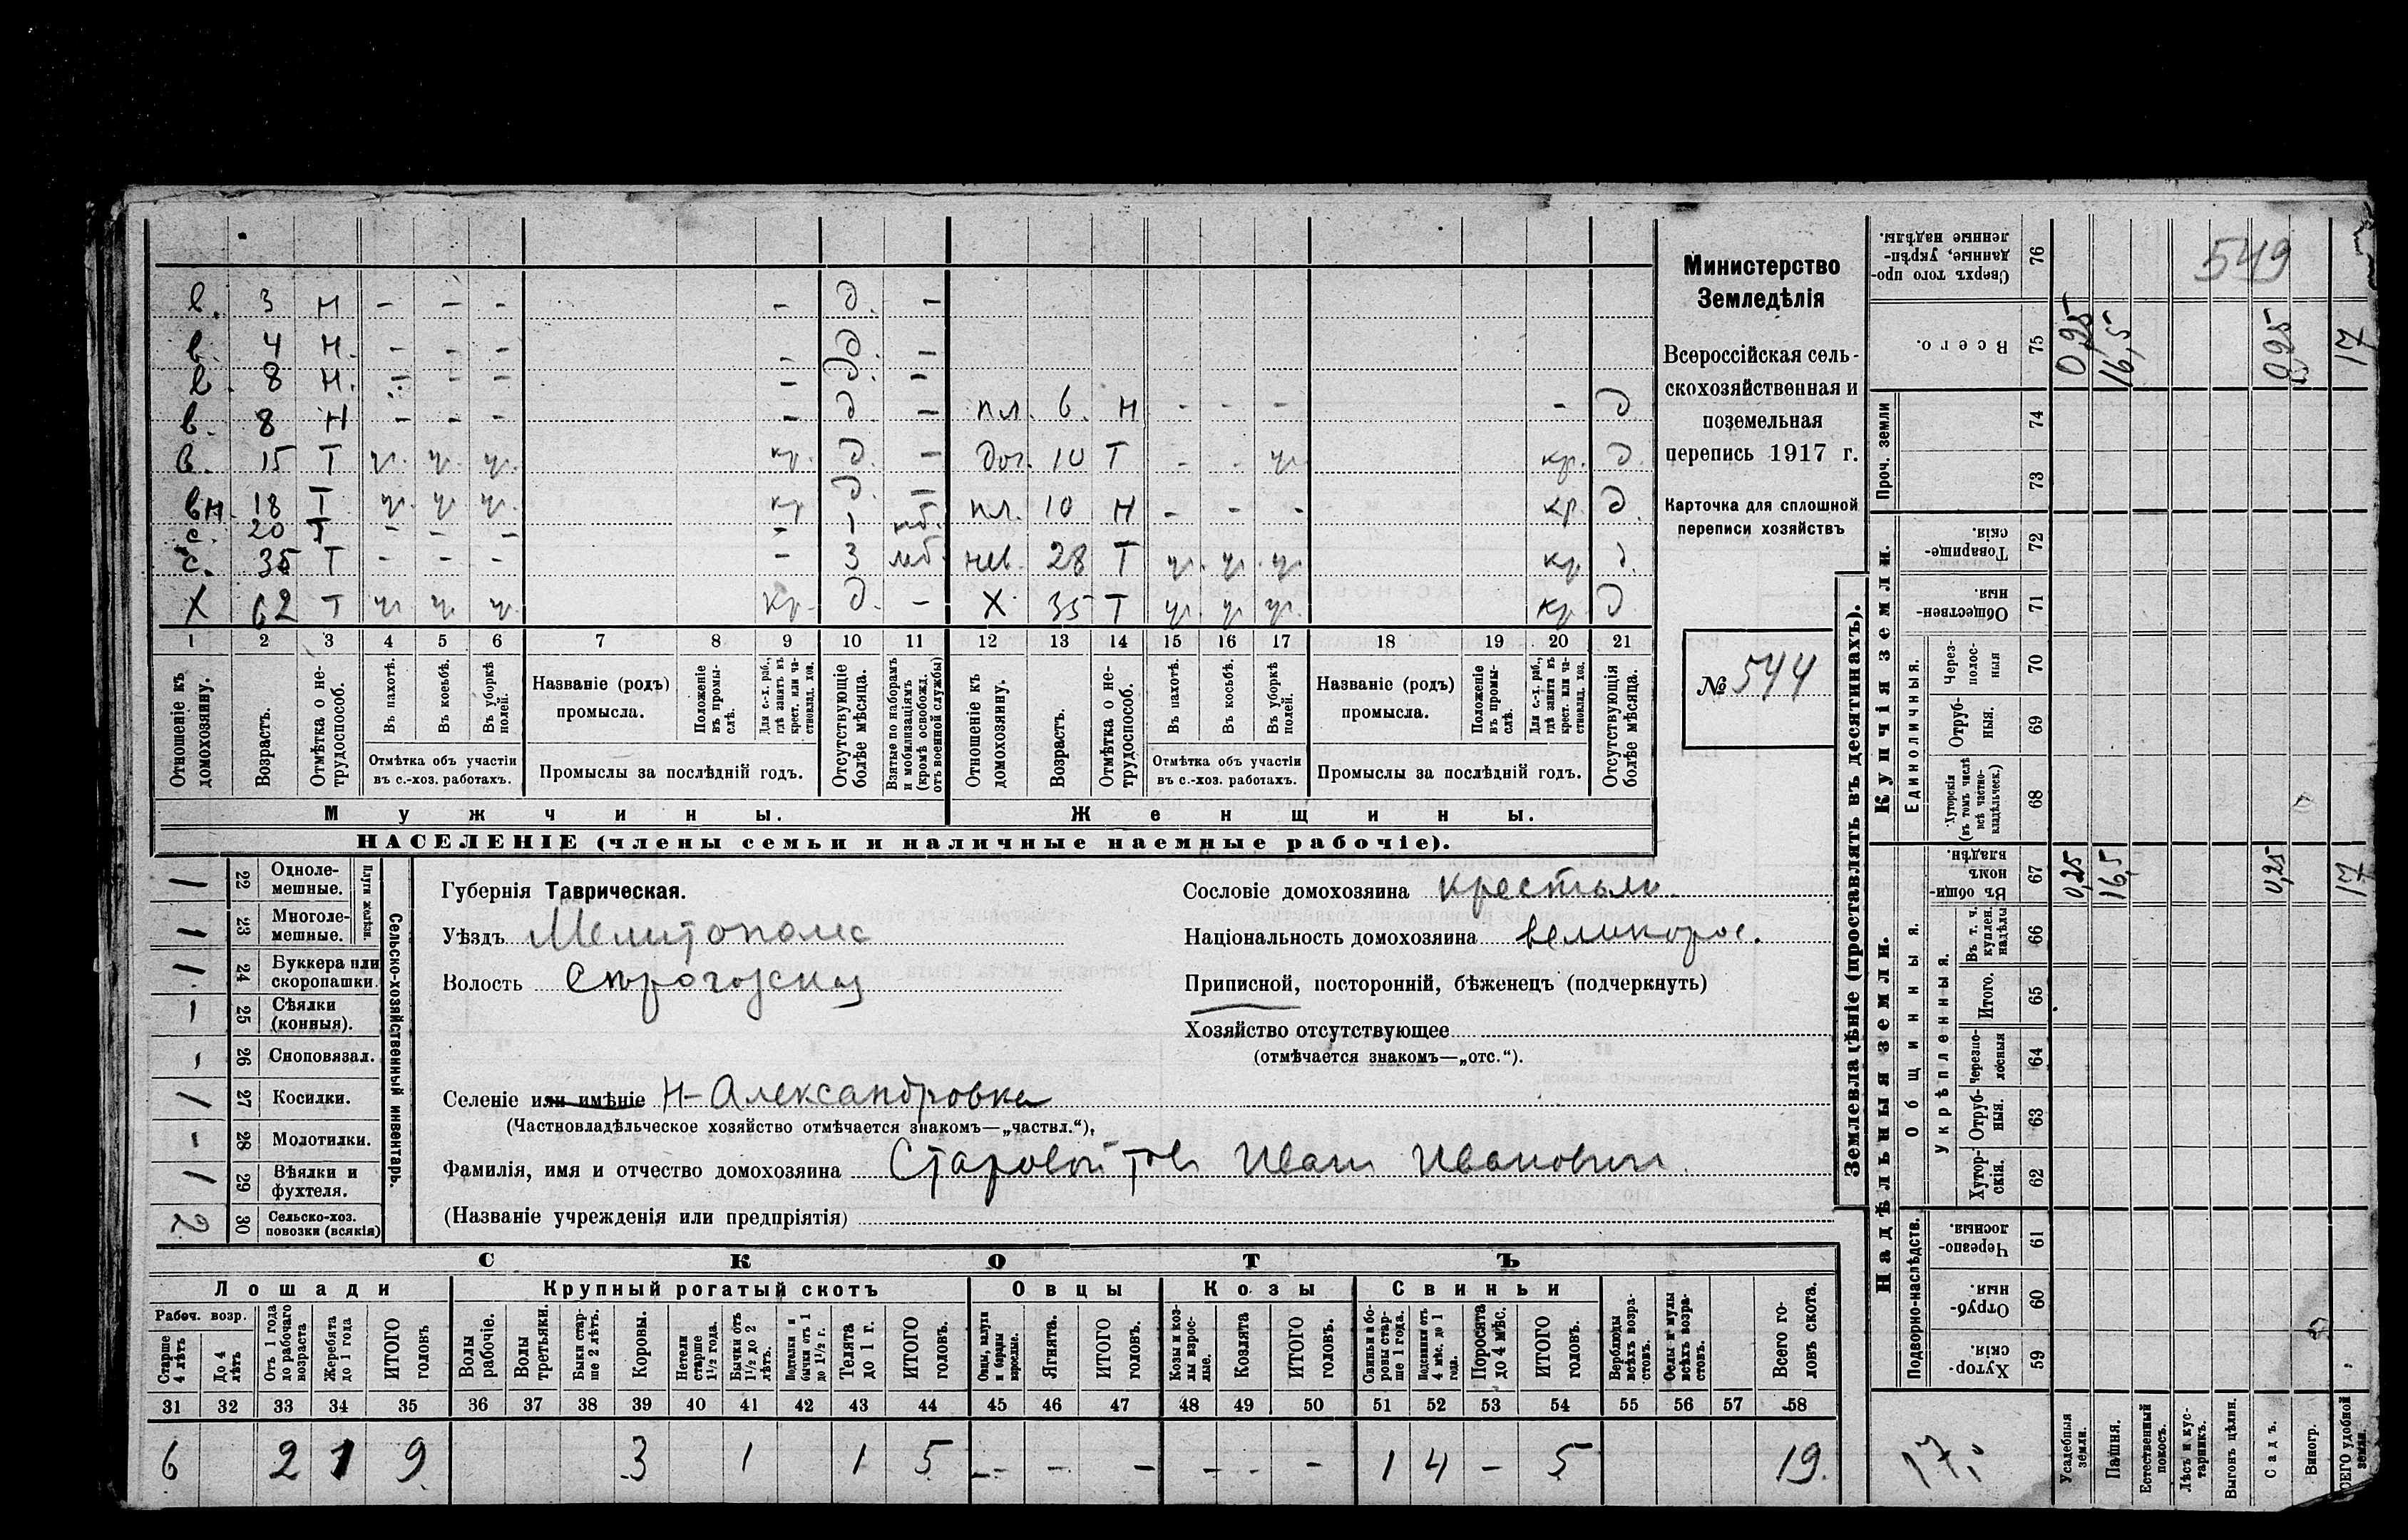 549
Министерство
Земледѣлія
Всероссійская сель-
скохозяйственная и
поземельная
перепись 1917 г.
Карточка для сплошной
переписи хозяйствъ
№ 544
в. 3 Н - - - - д. -
в. 4 Н. - - - - д. -
в. 8 Н. - - - - д. -
в. 8 Н - - - - д - пл. 6. Н - - - - д
в. 15 Т ч. ч. ч. кр. д. - доч. 10 Т - - ч. кр. д.
вн. 18 Т ч. ч. ч. кр д. - пл. 10 Н - - - кр. д.
с. 20 Т - - - - 1 мб.
с. 35 Т - - - - 3 мб. нев. 28 Т ч. ч. ч. кр д.
Х 62 Т ч. ч. ч. кр. д. - Х 35 Т ч. ч. ч. кр д
1 2 3 4 5 6 7 8 9 10 11 12 13 14 15 16 17 18 19 20 21
Отношеніе къ домохозяину.
Возрастъ.
Отмѣтка о не-трудоспособ.
Въ пахотѣ.
Въ косьбѣ.
Въ уборкѣ полей.
Отмѣтка объ участіи
въ с.-хоз. работахъ.
Названіе (родъ)
промысла.
Положеніе въ промы-слѣ.
Для с.-х. раб., гдѣ занятъ въ крест. или ча-стновлад. хоз.
Промыслы за послѣдній годъ.
Отсутствующіе болѣе мѣсяца.
Взятые по наборамъ и мобилизаціямъ (кромѣ освобожд. отъ военной службы)
Отношеніе къ домохозяину.
Возрастъ.
Отмѣтка о не-трудоспособ.
Въ пахотѣ.
Въ косьбѣ.
Въ уборкѣ полей.
Отмѣтка объ участіи
въ с.-хоз. работахъ.
Названіе (родъ)
промысла.
Положеніе въ промы-слѣ.
Для с.-х. раб., гдѣ занята въ крест. или ча-стновлад. хоз.
Промыслы за послѣдній годъ.
Отсутствующія болѣе мѣсяца.
Мужчины. Женщины.
НАСЕЛЕНІЕ (члены семьи и наличные наемные рабочіе).
Сельско-хозяйственный инвентарь.
Плуги желѣзн.
1 22 Одноле-мешные.
1 23 Многоле-мешные.
1 24 Буккера или скоропашки.
- 25 Сѣялки (конныя).
- 26 Сноповязал.
1 27 Косилки.
- 28 Молотилки.
1 29 Вѣялки и фухтеля.
2 30 Сельско-хоз. повозки (всякія)
Губернія Таврическая.
Уѣздъ Мелитополс
Волость
Селеніе или имѣніе Н-Александровка
(Частновладѣльческое хозяйство отмѣчается знакомъ—„частвл.“).
Фамилія, имя и отчество домохозяина Старовойтов Иван Иванович
(Названіе учрежденія или предпріятія)
Сословіе домохозяина крестьян
Національность домохозяина великорос.
Приписной, посторонній, бѣженецъ (подчеркнуть)
Хозяйство отсутствующее
(отмѣчается знакомъ—„отс.“).
СКОТЪ
Лошади Крупный рогатый скотъ Овцы Козы Свиньи
Рабоч. возр.
Старше 4 лѣтъ
До 4 лѣтъ
Отъ 1 года до рабочаго возраста
Жеребята до 1 года
ИТОГО головъ
Волы рабочіе.
Волы третьяки.
Быки стар-ше 2 лѣтъ.
Коровы.
Нетели старше 1½ года.
Бычки отъ 1½ до 2 лѣтъ.
Подтелки и бычки отъ 1 до 1½ г.
Телята до 1 г.
ИТОГО головъ.
Овцы, валухи и бараны взрослые.
Ягнята.
ИТОГО головъ.
Козы и коз-лы взрос-лые.
Козлята
ИТОГО головъ.
Свиньи и бо-ровы стар-ше 1 года.
Подсвинки отъ 4 мѣс. до 1 года.
Поросята до 4 мѣс.
ИТОГО головъ.
Верблюды всѣхъ возра-стовъ.
Ослы и мулы всѣхъ возра-стовъ.
Всего го-ловъ скота.
31 32 33 34 35 36 37 38 39 40 41 42 43 44 45 46 47 48 49 50 51 52 53 54 55 56 57 58
6 2 1 9 3 1 1 5 - - - - - - 1 4 - 5 19.
Землевладѣніе (проставлять въ десятинахъ).
Надѣльныя земли. Купчія земли. Проч. земли
Подворно-наслѣдств.
Общинныя.
Укрѣпленныя.
Единоличныя.
59 Хутор-скія.
60 Отруб-ныя.
61 Черезпо-лосныя.
62 Хутор-скія.
63 Отруб-ныя.
64 Черезпо-лосныя
65 Итого.
66 Въ т. ч. куплен. надѣлы
67 Въ общин-номъ владѣн.
68 Хуторскія (въ томъ числѣ всѣ частно-владѣльческ.)
69 Отруб-ныя.
70 Через-полос-ныя
71 Обществен-ныя.
72 Товарище-скія.
73
74
75 Всего.
76 Сверхъ того про-данные, укрѣп-ленные надѣлы.
Усадебныя земли. 0,25 0,25
Пашня. 16,5 16,5
Естественный покосъ.
Лѣсъ и кус-тарникъ.
Выгонъ цѣлин.
Садъ. 0,25 0,25
Виногр.
ВСЕГО удобной земли. 17 17
17,